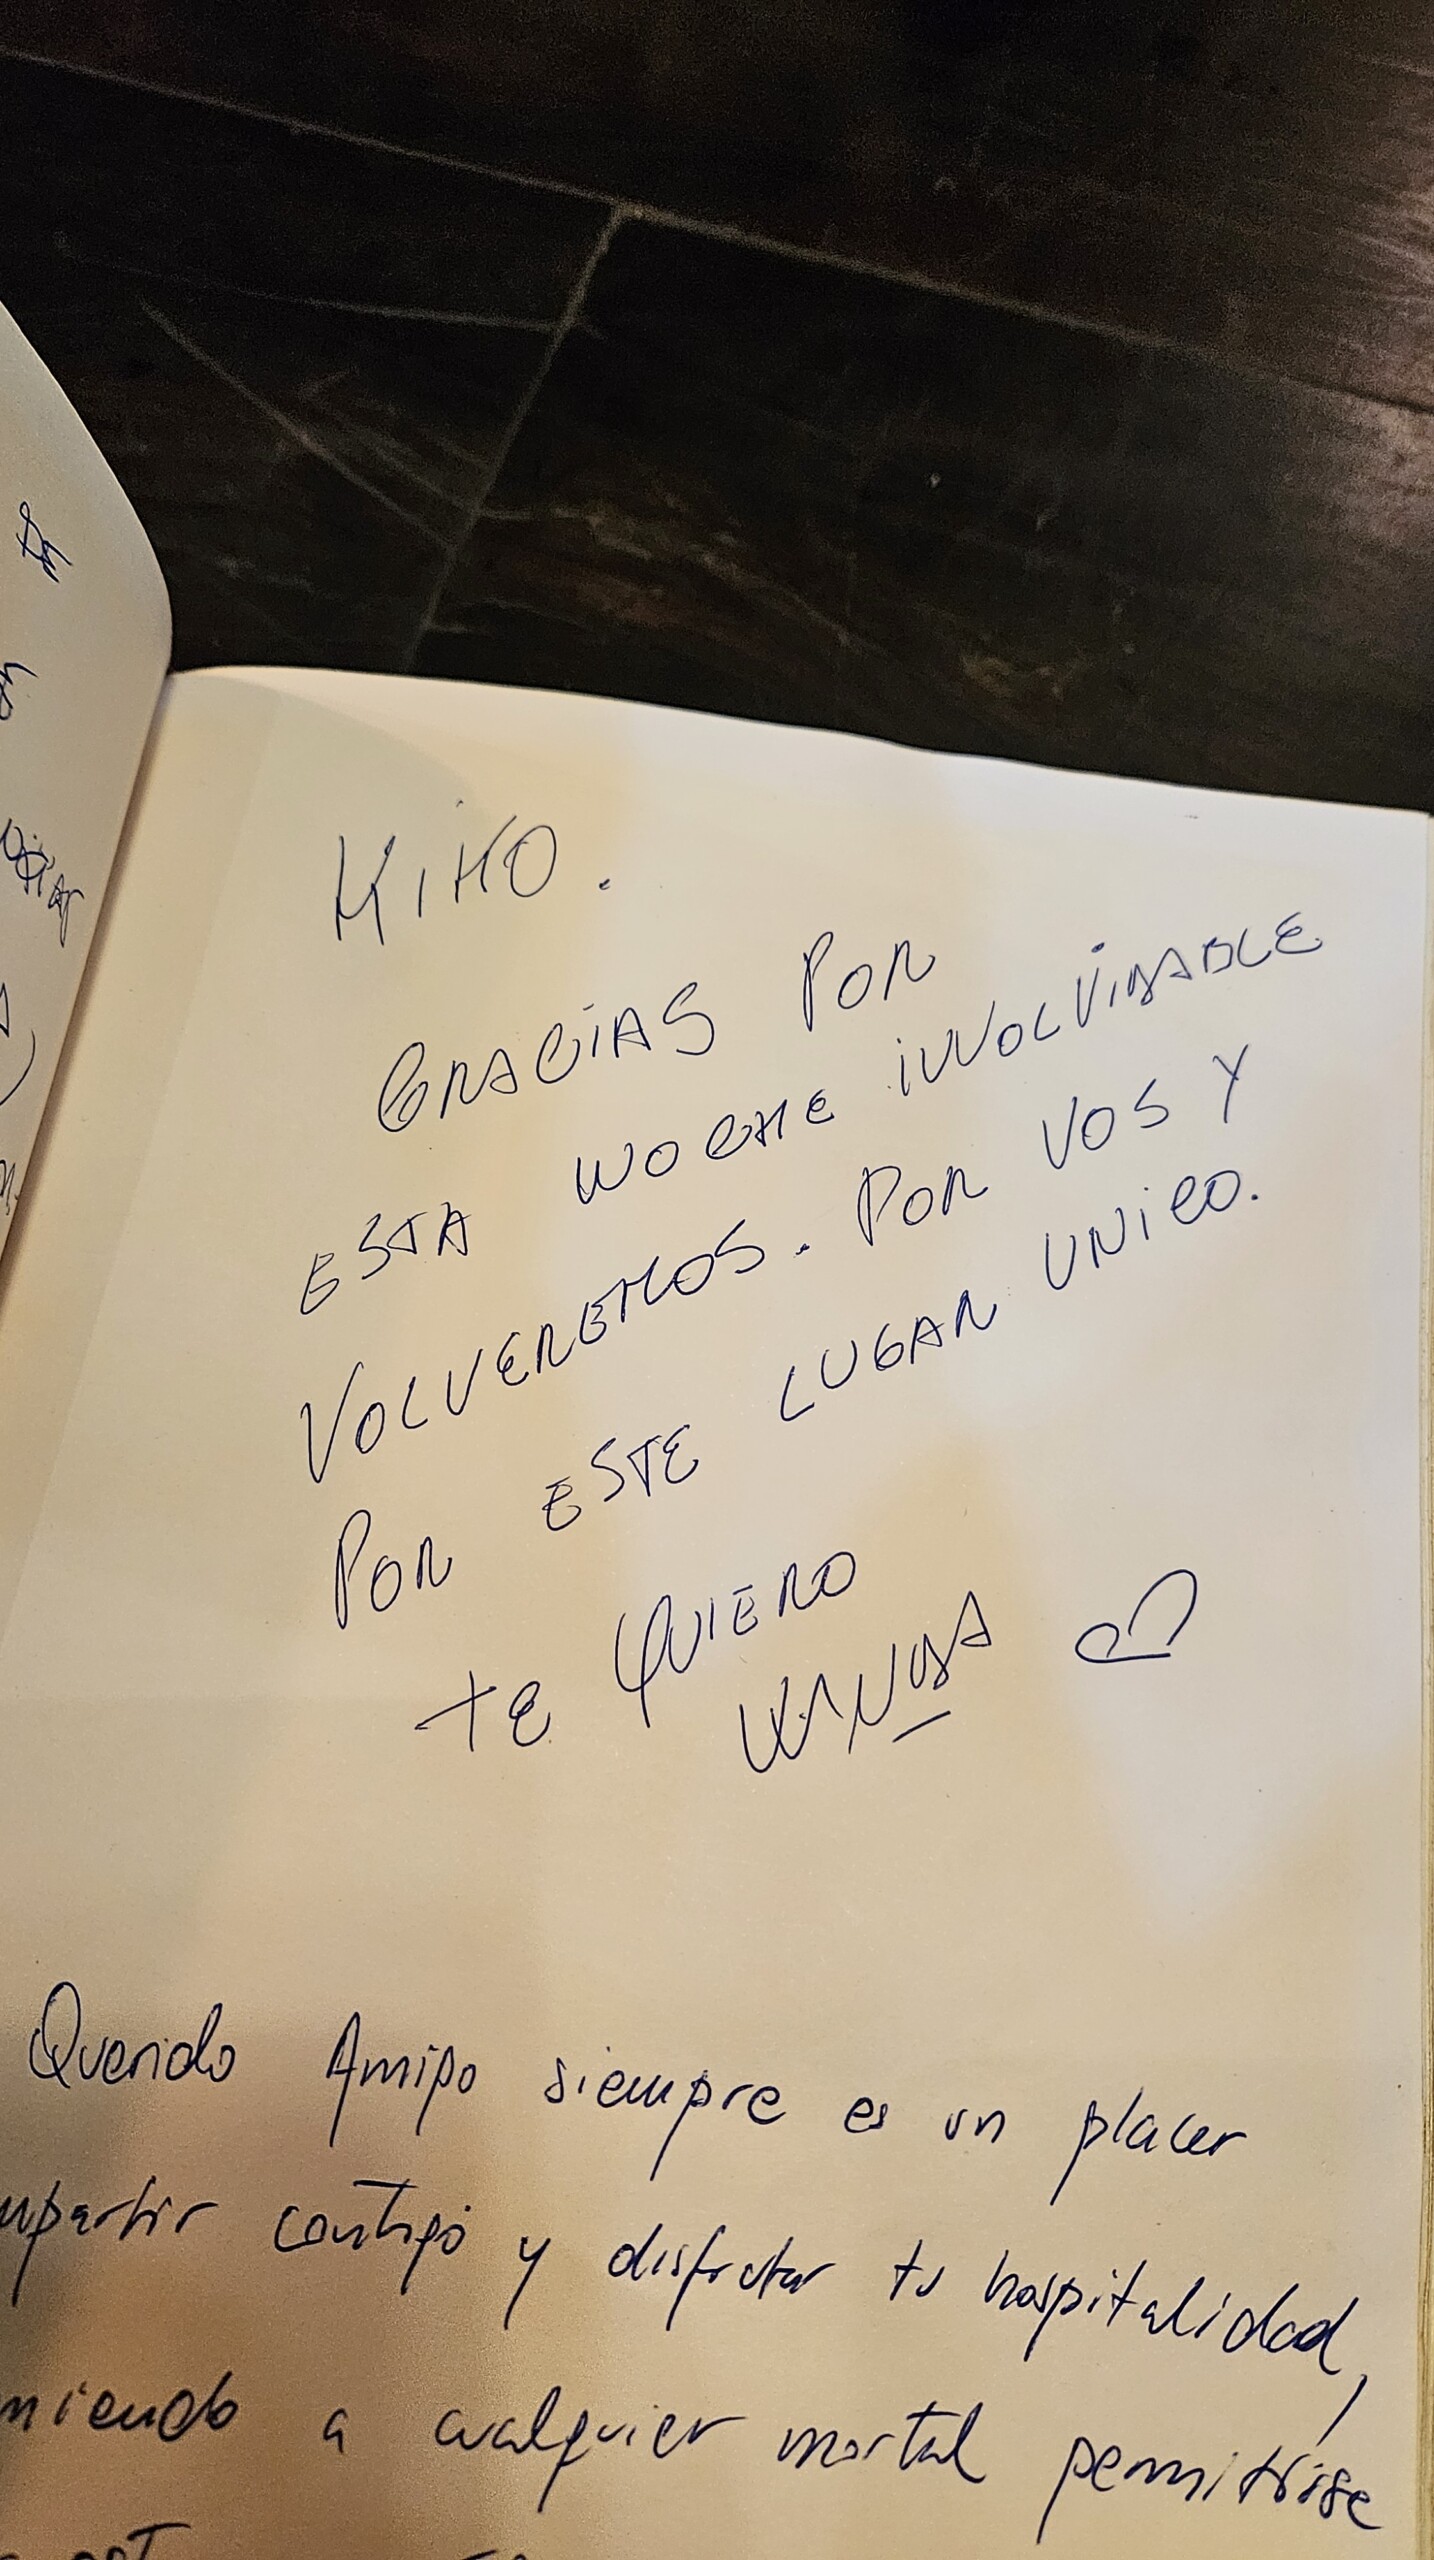 KIKO.
GRACIAS POR
ESTA NOCHE INNOLVIDABLE
VOLVEREMOS. POR VOS Y
POR ESTE LUGAR UNICO.
TE QUIERO
Querido Amigo siempre es un placer
mpartir contigo y disfrutar tu hospitalidad,
miendo a cualquier mortal permitirse